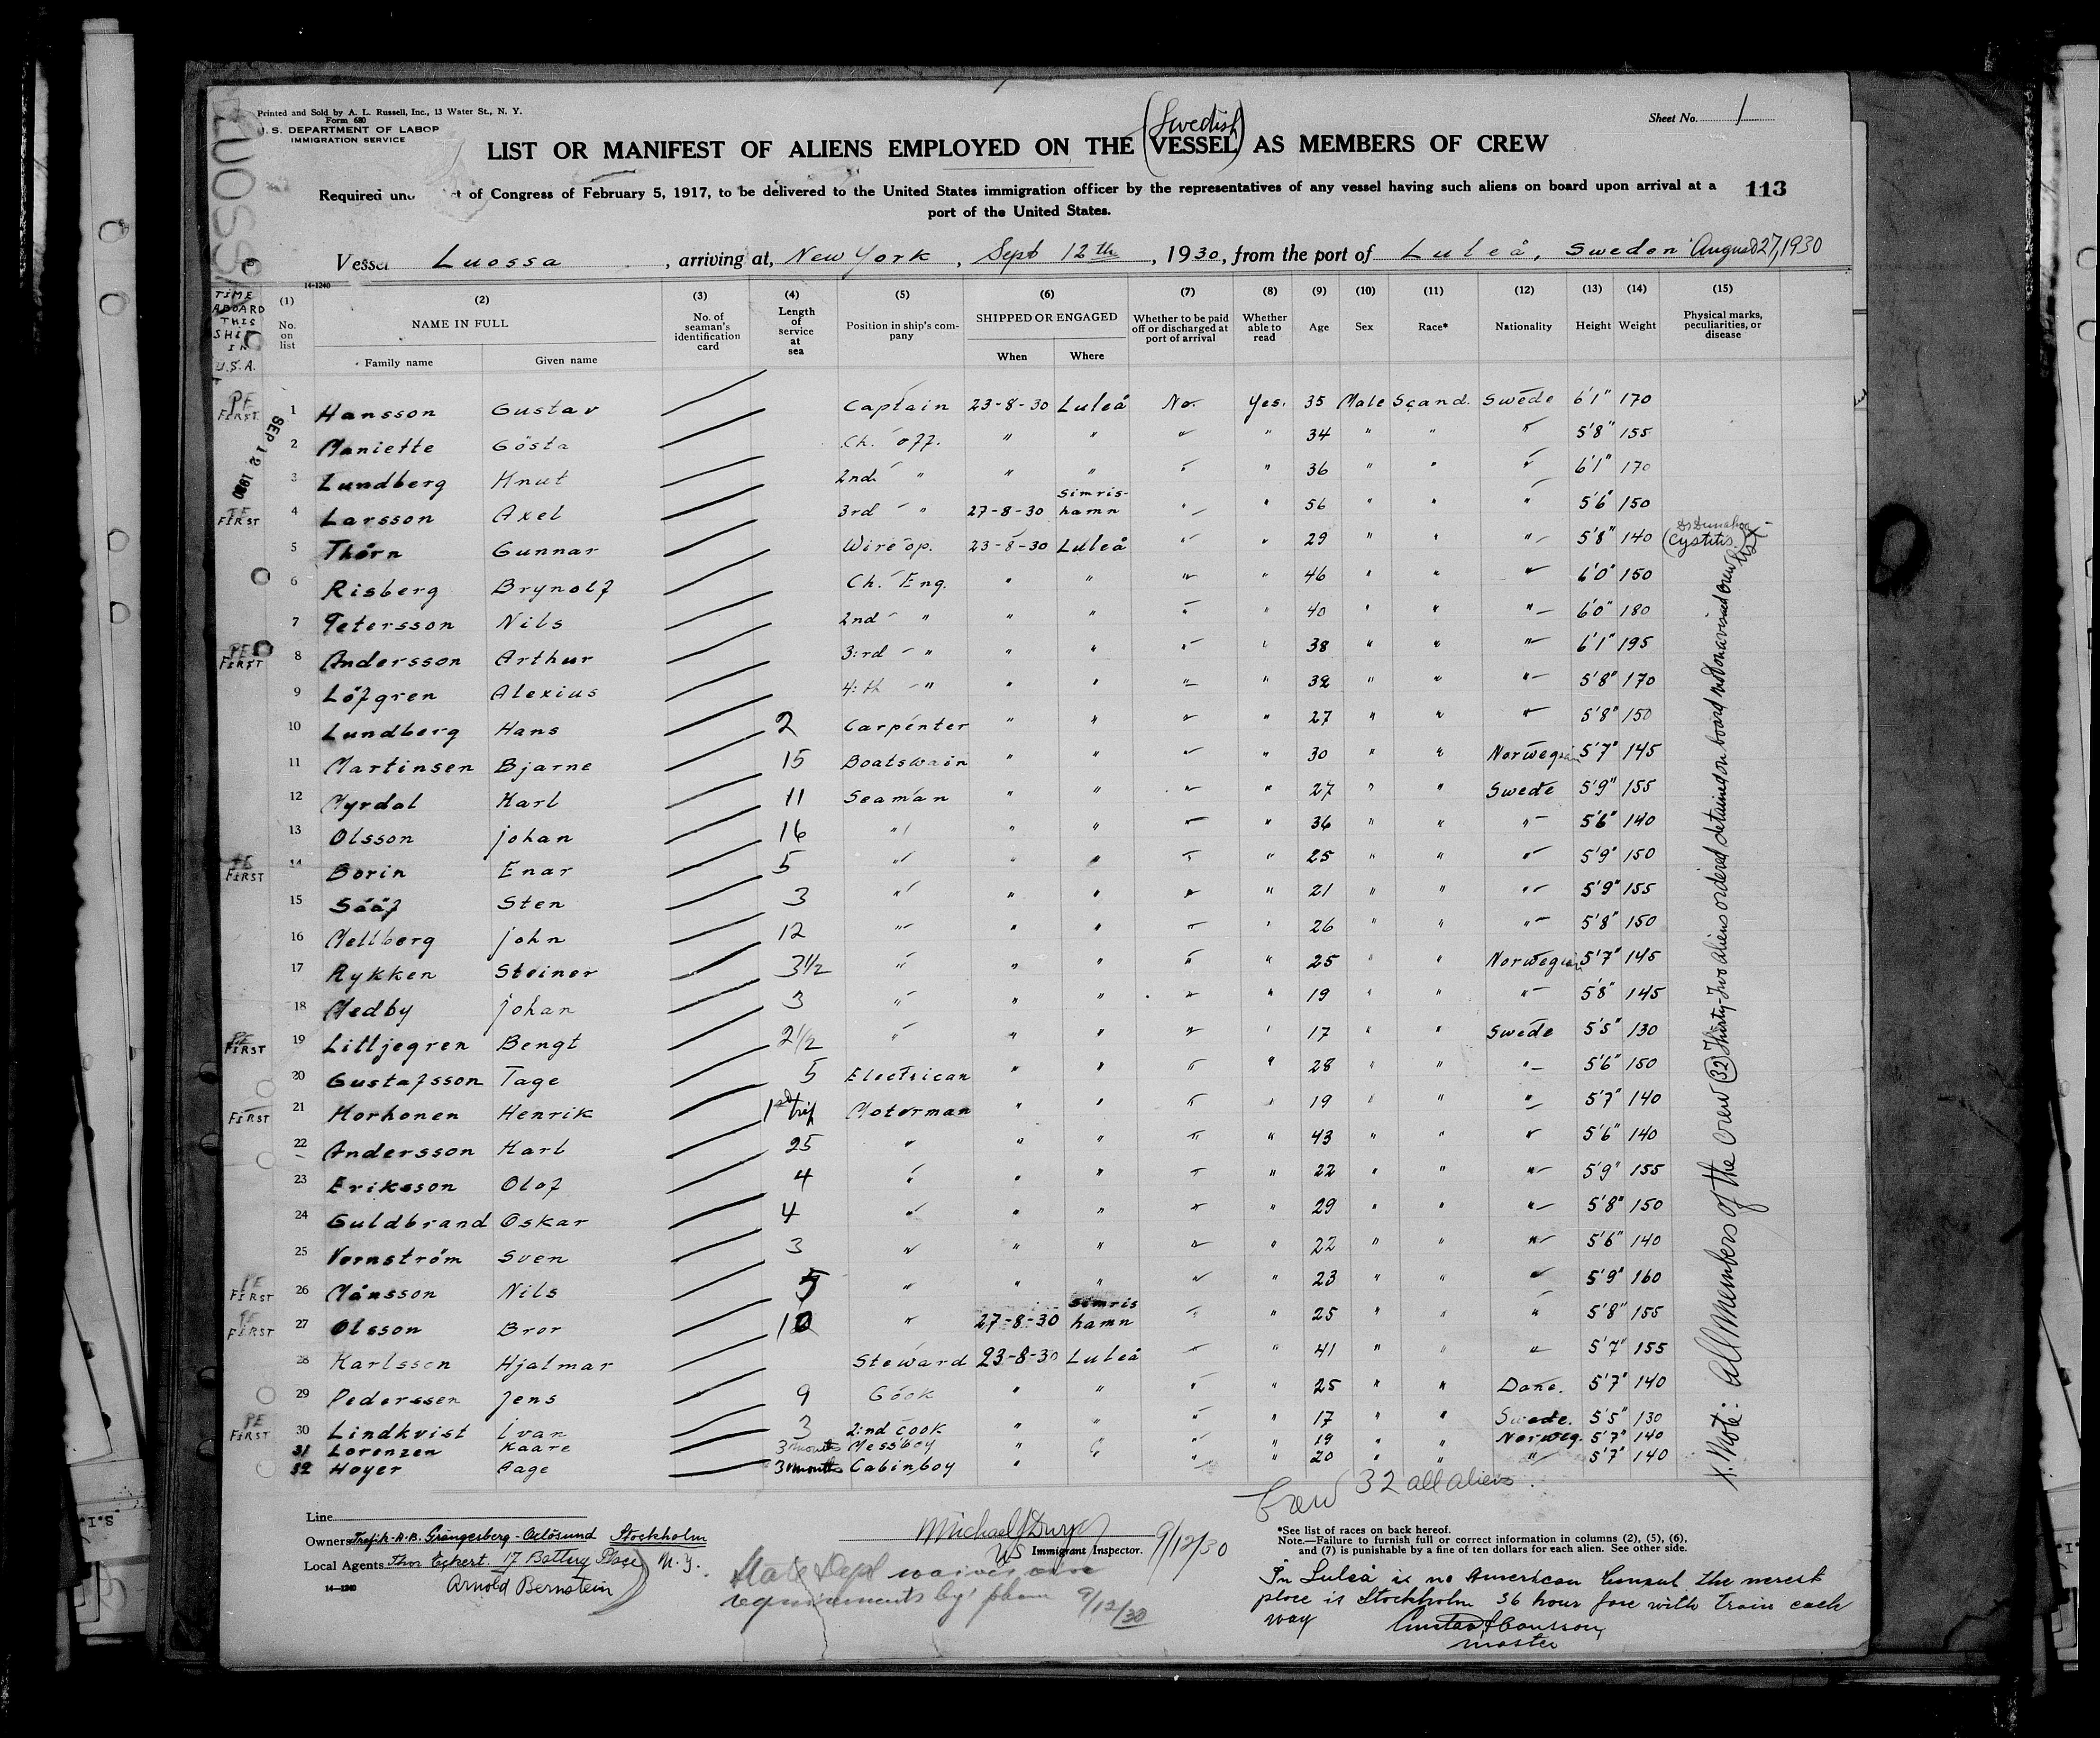 LUOSSA
Printed and Sold by A. L. Russell, Inc., 13 Water St., N. Y.
Form 680
U. S. DEPARTMENT OF LABOR
IMMIGRATION SERVICE
Sheet No. 1
(Swedish)
LIST OR MANIFEST OF ALIENS EMPLOYED ON THE VESSEL AS MEMBERS OF CREW
113
Required und ct of Congress of February 5, 1917, to be delivered to the United States immigration officer by the representatives of any vessel having such aliens on board upon arrival at a
port of the United States.
Vessel Luossa, arriving at, New York, Sept 12th, 1930, from the port of Luleå, Sweden August 27, 1930
14-1240
TIME ABOARD THIS SHIP IN U.S.A.
(1) (2) (3) (4) (5) (6) (7) (8) (9) (10) (11) (12) (13) (14) (15)
No. on list NAME IN FULL No. of seaman's identification card Length of service at sea Position in ship's company SHIPPED OR ENGAGED Whether to be paid off or discharged at port of arrival Whether able to read Age Sex Race* Nationality Height Weight Physical marks, peculiarities, or disease
Family name Given name When Where
PE FIRST 1 Hansson Gustav Captain 23-8-30 Luleå No. Yes. 35 Male Scand. Swede 6'1" 170
SEP 12 1930
2 Maniette Gösta Ch. off. " " " " 34 " " " 5'8" 155
3 Lundberg Knut 2nd " " " " " 36 " " " 6'1" 170
FIRST 4 Larsson Axel 3rd " 27-8-30 Simrishamn " " 56 " " " 5'6" 150
5 Thörn Gunnar Wire op. 23-8-30 Luleå " " 29 " " " 5'8" 140 (Cystitis)
6 Risberg Brynolf Ch. Eng. " " " " 46 " " " 6'0" 150
7 Petersson Nils 2nd " " " " " 40 " " " 6'0" 180
PE FIRST 8 Andersson Arthur 3:rd " " " " " 38 " " " 6'1" 195
9 Löfgren Alexius 4:th " " " " " 32 " " " 5'8" 170
10 Lundberg Hans 2 Carpenter " " " " 27 " " " 5'8" 150
11 Martinsen Bjarne 15 Boatswain " " " " 30 " " Norwegian 5'7" 145
12 Myrdal Karl 11 Seaman " " " " 27 " " Swede 5'9" 155
13 Olsson Johan 16 " " " " " 36 " " " 5'6" 140
FIRST 14 Borin Enar 5 " " " " " 25 " " " 5'9" 150
15 Sääf Sten 3 " " " " " 21 " " " 5'9" 155
16 Mellberg John 12 " " " " " 26 " " " 5'8" 150
17 Rykken Steiner 3 1/2 " " " " " 25 " " Norwegian 5'7" 145
18 Medby Johan 3 " " " " " 19 " " " 5'8" 145
PE FIRST 19 Littjegren Bengt 2 1/2 " " " " " 17 " " Swede 5'5" 130
20 Gustafsson Tage 5 Electrican " " " " 28 " " " 5'6" 150
FIRST 21 Korhonen Henrik 1st trip Motorman " " " " 19 " " " 5'7" 140
22 Andersson Karl 25 " " " " " 43 " " " 5'6" 140
23 Eriksson Olof 4 " " " " " 22 " " " 5'9" 155
24 Guldbrand Oskar 4 " " " " " 29 " " " 5'8" 150
25 Vernström Sven 3 " " " " " 22 " " " 5'6" 140
PE FIRST 26 Månsson Nils 5 " " " " " 23 " " " 5'9" 160
PE FIRST 27 Olsson Bror 10 " 27-8-30 Simrishamn " " 25 " " " 5'8" 155
28 Karlsson Hjalmar Steward 23-8-30 Luleå " " 41 " " " 5'7" 155
29 Pederssen Jens 9 Cook " " " " 25 " " Dane. 5'7" 140
PE FIRST 30 Lindkvist Ivan 3 2:nd cook " " " " 17 " " Swede. 5'5" 130
31 Lorenzen Kaare 3 months Messboy " " " " 19 " " Norweg. 5'7" 140
32 Hoyer Aage 3 months Cabinboy " " " 20 " " " 5'7" 140
X. Note: All Members of the Crew (32) Thirty-Two aliens ordered detained on board and on a visaed crew list
Crew 32 all aliens.
Line
Owners Trafik-A.B. Grängesberg-Oxelösund Stockholm
Local Agents Thor Eckert. 17 Battery Place N.Y.
14-1240
Arnold Bernstein
Michael J Drury 9/12/30
US Immigrant Inspector.
State Dept waives visa
requirements by phone 9/12/30
*See list of races on back hereof.
Note.—Failure to furnish full or correct information in columns (2), (5), (6),
and (7) is punishable by a fine of ten dollars for each alien. See other side.
In Luleå is no American Consul the nerest
place is Stockholm 36 hour fare with train each
way
Gustav Hansson,
master